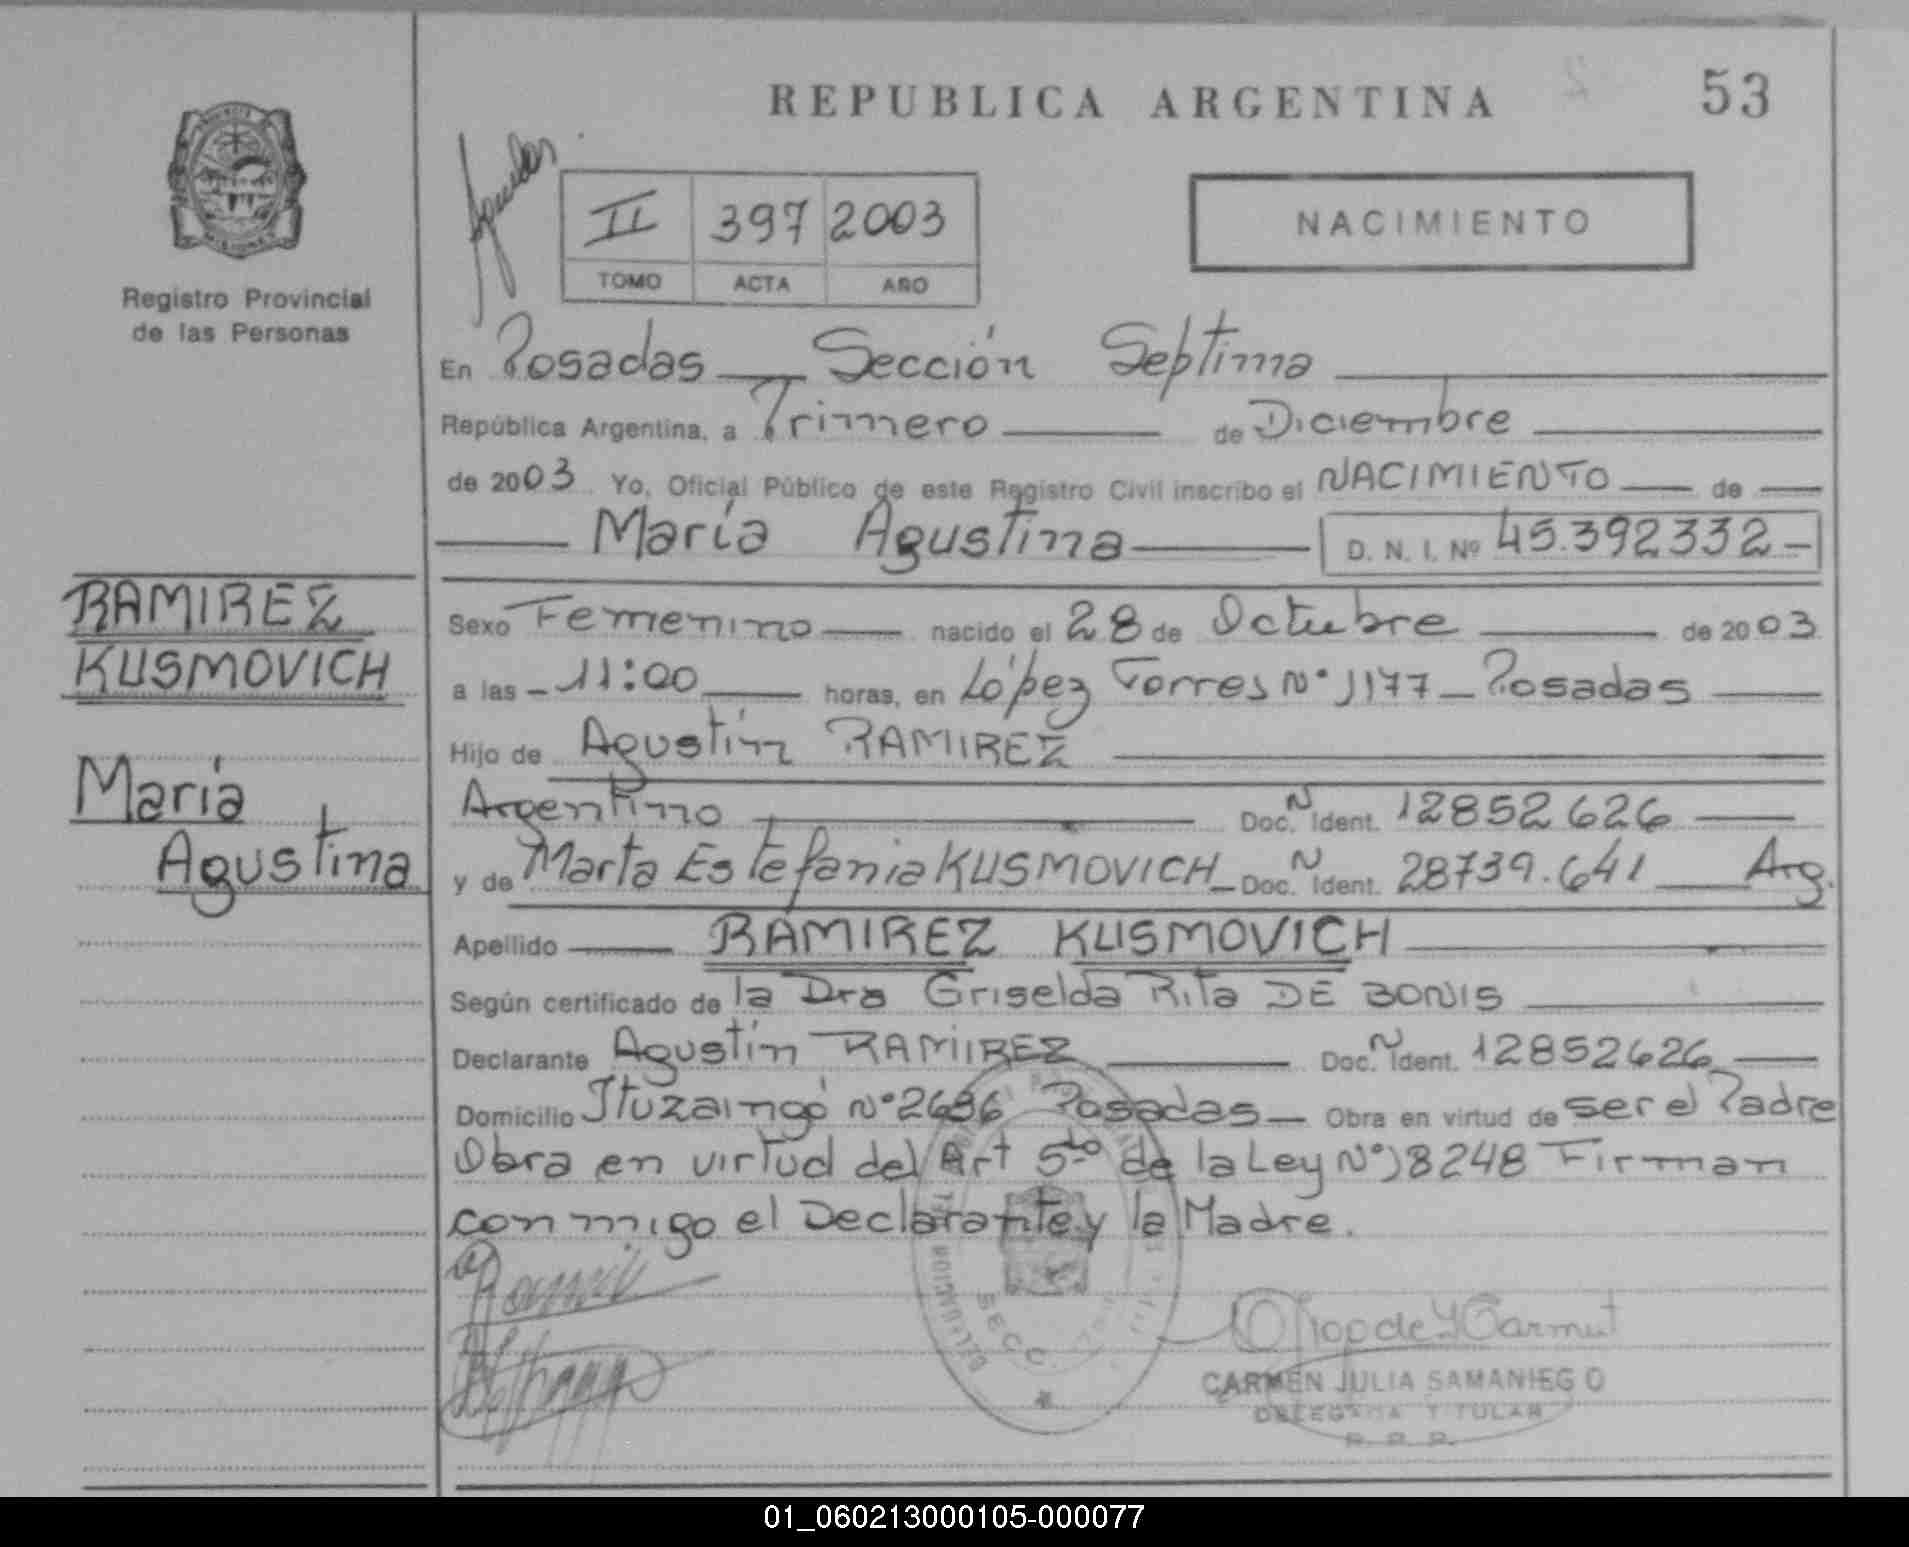 REPUBLICA ARGENTINA
53
II 397 2003
TOMO ACTA AÑO
NACIMIENTO
Registro Provincial
de las Personas
En Posadas Sección Septima
República Argentina, a Primero de Diciembre
de 2003 Yo, Oficial Público de este Registro Civil inscribo el NACIMIENTO de
María Agustina D. N. I. Nº 45.392332-
RAMIREZ
KUSMOVICH
María
Agustina
Sexo Femenino nacido el 28 de Octubre de 2003
a las - 11:00 horas, en López Torres Nº 1177 - Posadas
Hijo de Agustín RAMIREZ
Argentino Doc. N Ident. 12852626
y de Marta Estefania KUSMOVICH - Doc. N Ident. 28739.641 Arg.
Apellido RAMIREZ KUSMOVICH
Según certificado de la Dra Griselda Rita DE BONIS
Declarante Agustín RAMIREZ Doc. N Ident. 12852626
Domicilio Ituzaingó Nº Posadas - Obra en virtud de ser el Padre
Obra en virtud del Art 5to de la Ley Nº 18248 Firman
conmigo el Declarante y la Madre.
SECC.
CARMEN JULIA SAMANIEGO
DELEGADA TITULAR
R. P. P.
01_060213000105-000077